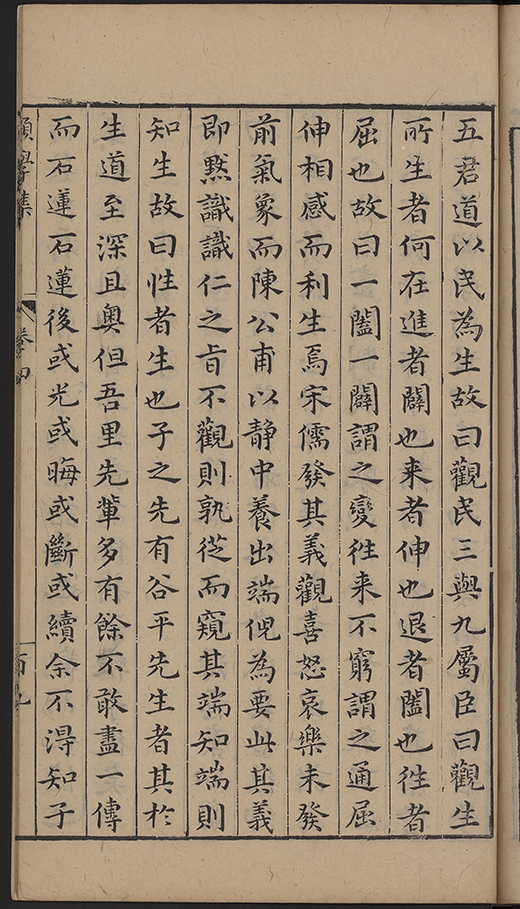 五君道以民為生故曰觀民三與九屬臣曰觀生
所生者何在進者闢也来者伸也退者闔也徃者
屈也故曰一闔一闢謂之變徃来不窮謂之通屈
伸相感而利生焉宋儒發其義觀喜怒哀樂未發
前氣象而陳公甫以静中養出端倪為要此其義
即黙識識仁之旨不觀則孰從而窺其端知端則
知生故曰性者生也子之先有谷平先生者其於
生道至深且奧但吾里先輩多有餘不敢盡一傳
而石蓮石蓮後或光或晦或斷或續余不得知子
願學集
卷四